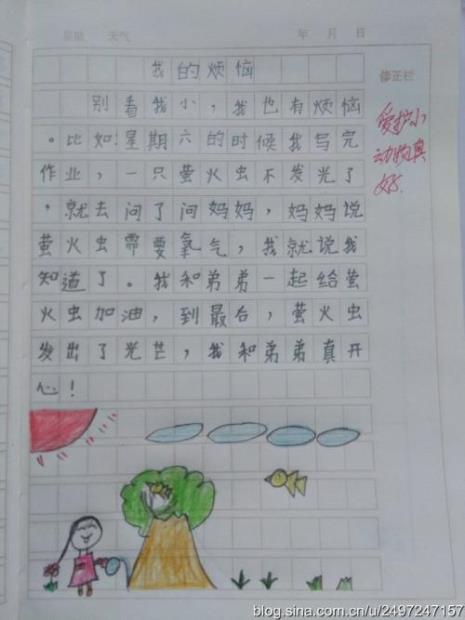 星期 天气 年 月 日
我的烦恼
修正栏
别看我小，我也有烦恼
。比如星期六的时候我写完
作业，一只萤火虫不发光了
，就去问了问妈妈，妈妈说
萤火虫需要氧气，我就说我
知道了。我和弟弟一起给萤
火虫加油，到最后，萤火虫
发出了光芒，我和弟弟真开
心！
爱护小
动物真
好.
blog.sina.com.cn/u/2497247157